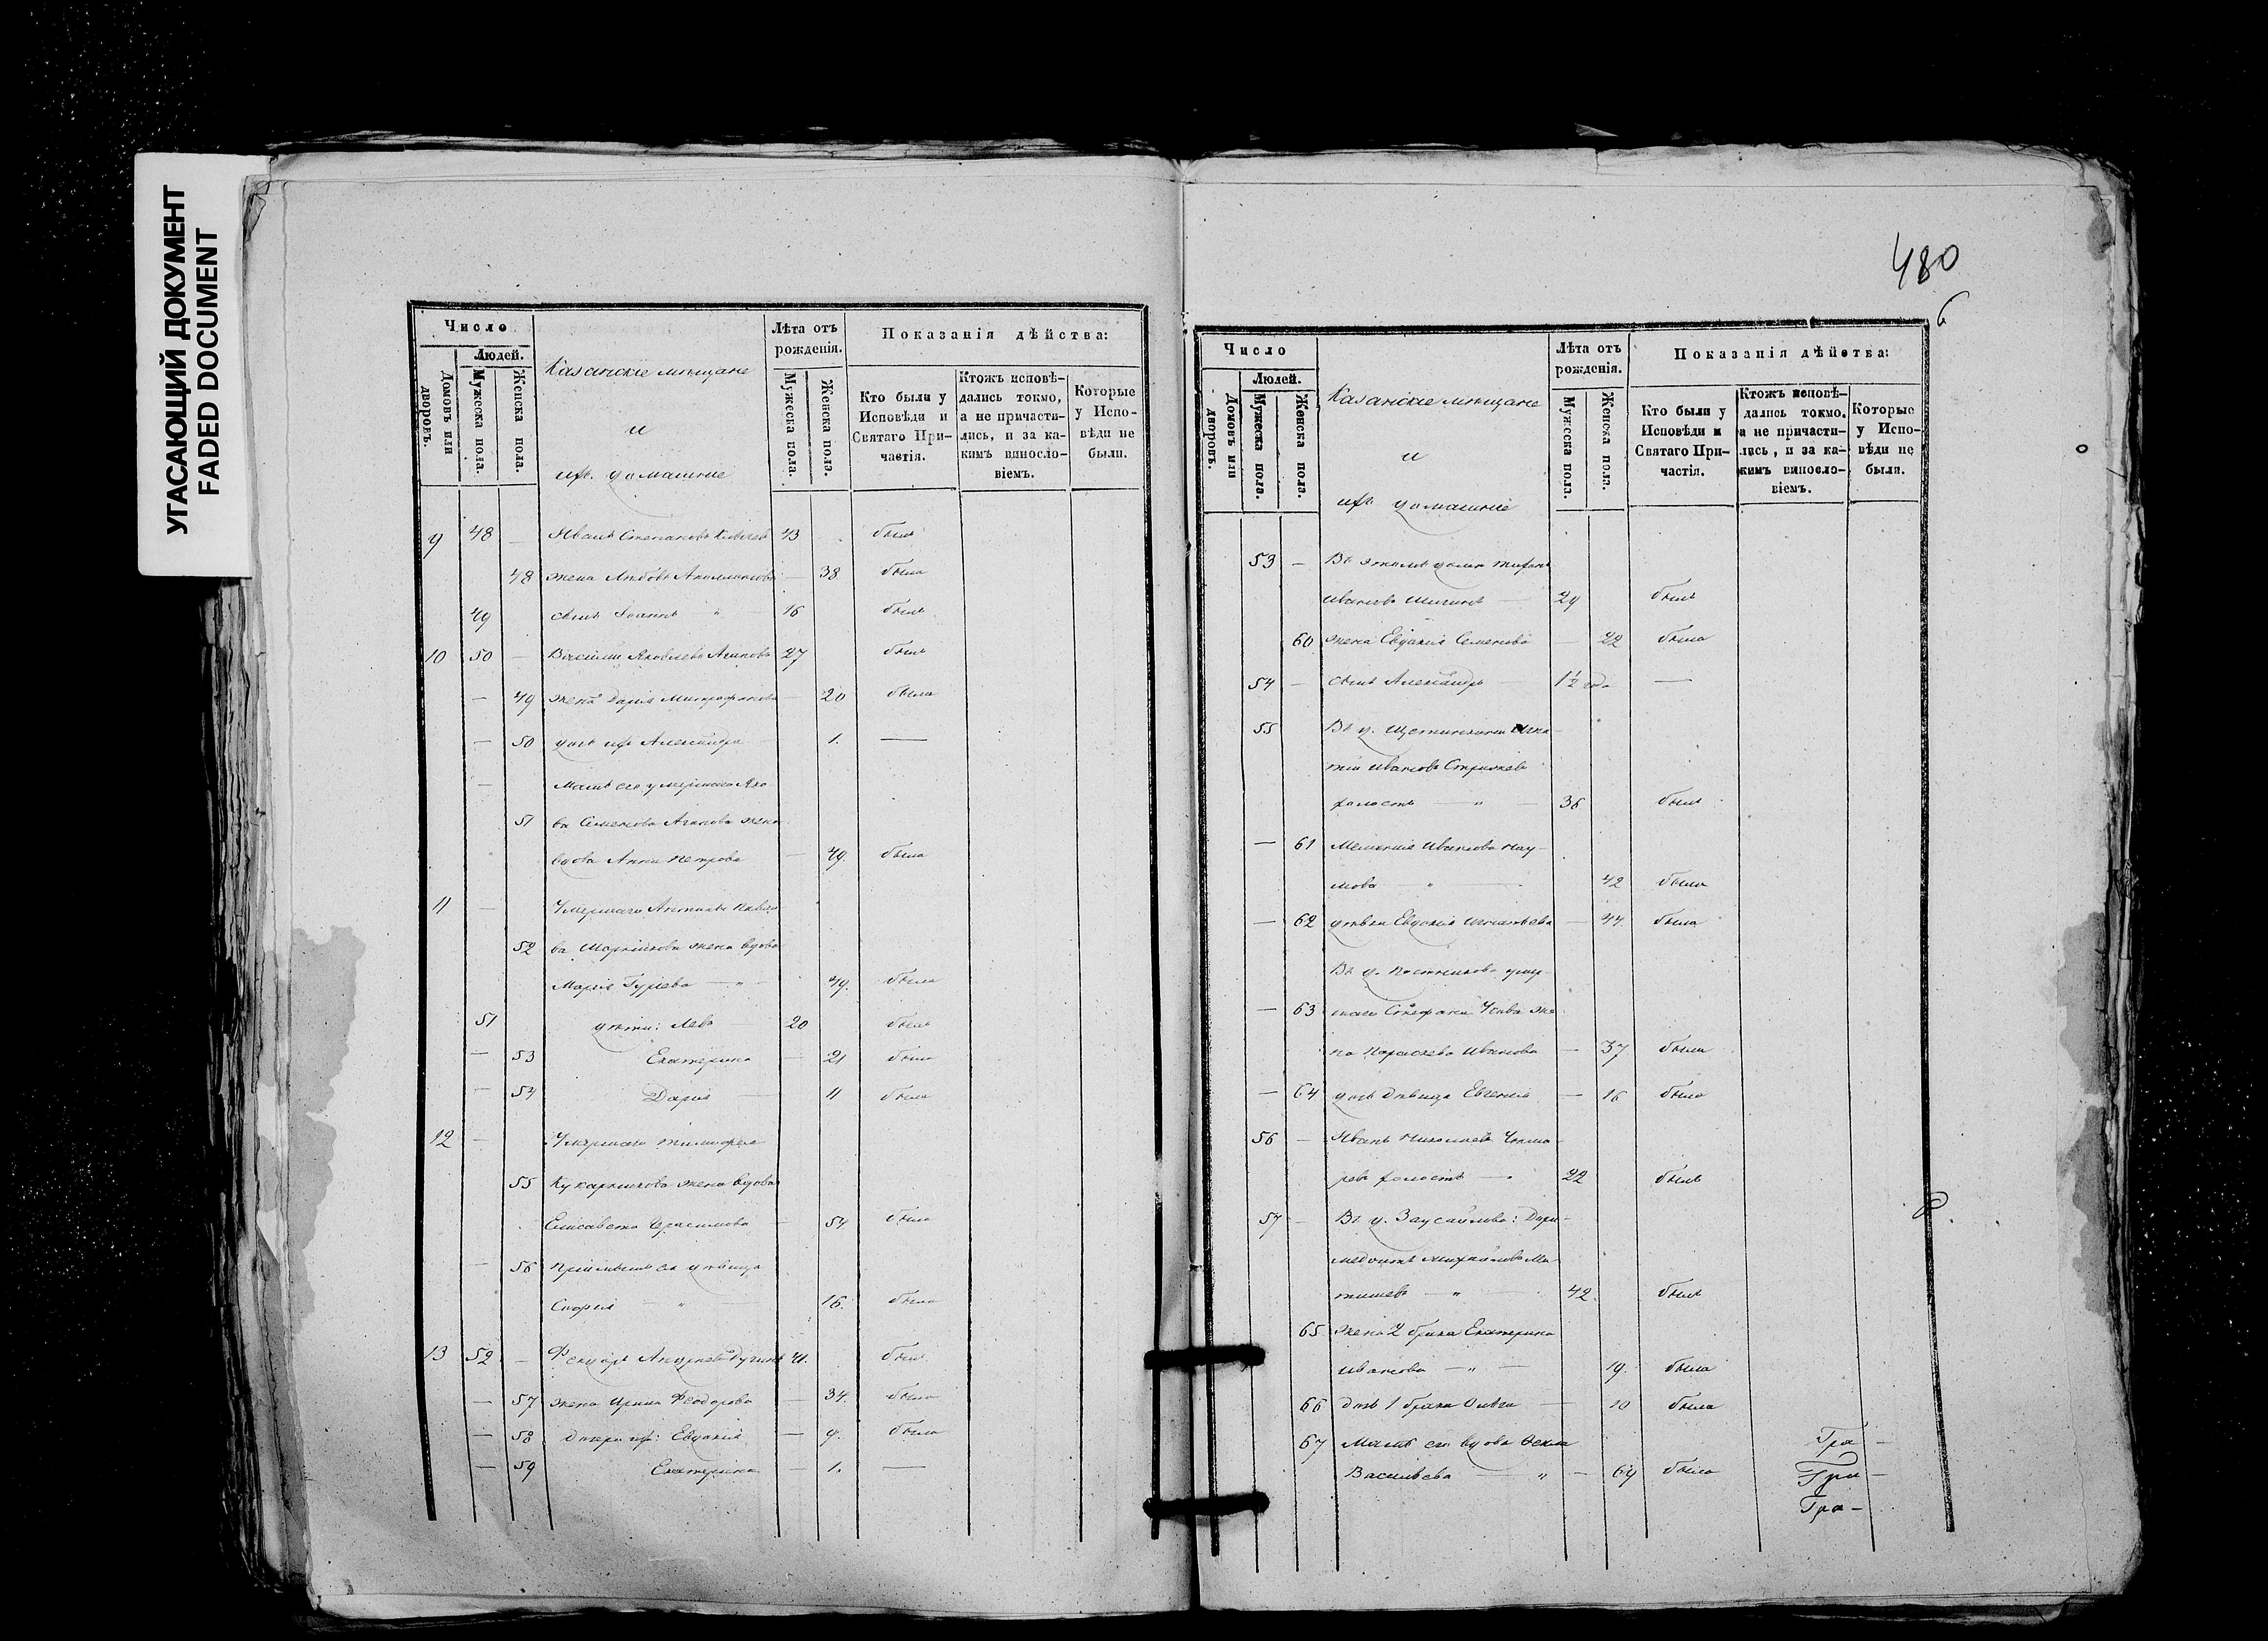 УГАСАЮЩИЙ ДОКУМЕНТ
FADED DOCUMENT
Число
Людей.
Домовъ или дворовъ.
Мужеска пола.
Женска пола.
Казанскіе мѣщане
и
ихъ домашніе
Лѣта отъ рожденія.
Мужеска пола.
Женска пола.
Показанія дѣйства:
Кто были у Исповѣди и Святаго Причастія.
Ктожъ исповѣдались токмо, а не причастились, и за какимъ винословіемъ.
Которые у Исповѣди не были.
9 48 — Иванъ Степановъ 43 былъ
48 жена Любовь — 38 была
49 сынъ Іоаннъ " — 16 былъ
10 50 — Василій Яковлевъ Агаповъ 27 былъ
— 49 жена Дарія Митрофанова — 20 была
— 50 дочь ихъ Александра 1. —
— Мать его умершаго Яко
51 ва Семенова Агапова жена
вдова Анна Петрова — 49. была
11 — Умершаго Антона Павло
52 ва жена вдова
Марія Гурьева — " — 49. была
51 дѣти: Левъ 20 былъ
— 53 Екатерина — 21 была
— 54 Дарія — 11 была
12 — Умершаго Тимофея
55 жена вдова
Елисавета Герасимова — 54 была
— 56 дѣвица
" — 16. была
13 52 — Феодоръ Андреевъ 41. былъ
— 57 жена Ирина Феодорова — 34. была
— 58 дочери ихъ: Евдокія — 9. была
— 59 Екатерина — 1. —
480
Число
Людей.
Домовъ или дворовъ.
Мужеска пола.
Женска пола.
Казанскіе мѣщане
и
ихъ домашніе
Лѣта отъ рожденія.
Мужеска пола.
Женска пола.
Показанія дѣйства:
Кто были у Исповѣди и Святаго Причастія.
Ктожъ исповѣдались токмо, а не причастились, и за какимъ винословіемъ.
Которые у Исповѣди не были.
53 — Въ этомъ домѣ
Ивановъ — 29 былъ
60 жена Евдокія Семенова — 22 была
54 — сынъ Александръ — 1½ года —
55 Въ д. Щетинкина Игна
тій Ивановъ
холостъ — " — 36 былъ
— 61 Меланія Иванова Нау-
мова — " — 42 была
— 62 дѣвка Евдокія Игнатьева — 44. была
Въ д. Постникова умер-
— 63 шаго Стефана же
на Параскева Иванова — 37 была
— 64 дочь дѣвица Евгенія — 16 была
56 — Иванъ Николаевъ
ревъ холостъ — 22 былъ
57 — Въ д. Заусайлова: Дори-
медонтъ Михайловъ
— " — 42. былъ
65 жена 2 брака Екатерина
Иванова — " — 19. была
66 дочь 1 брака Ольга — 10 была
67 Мать его вдова Фекла
Васильева — " — 69 была
Гра —
Гри —
Гра —